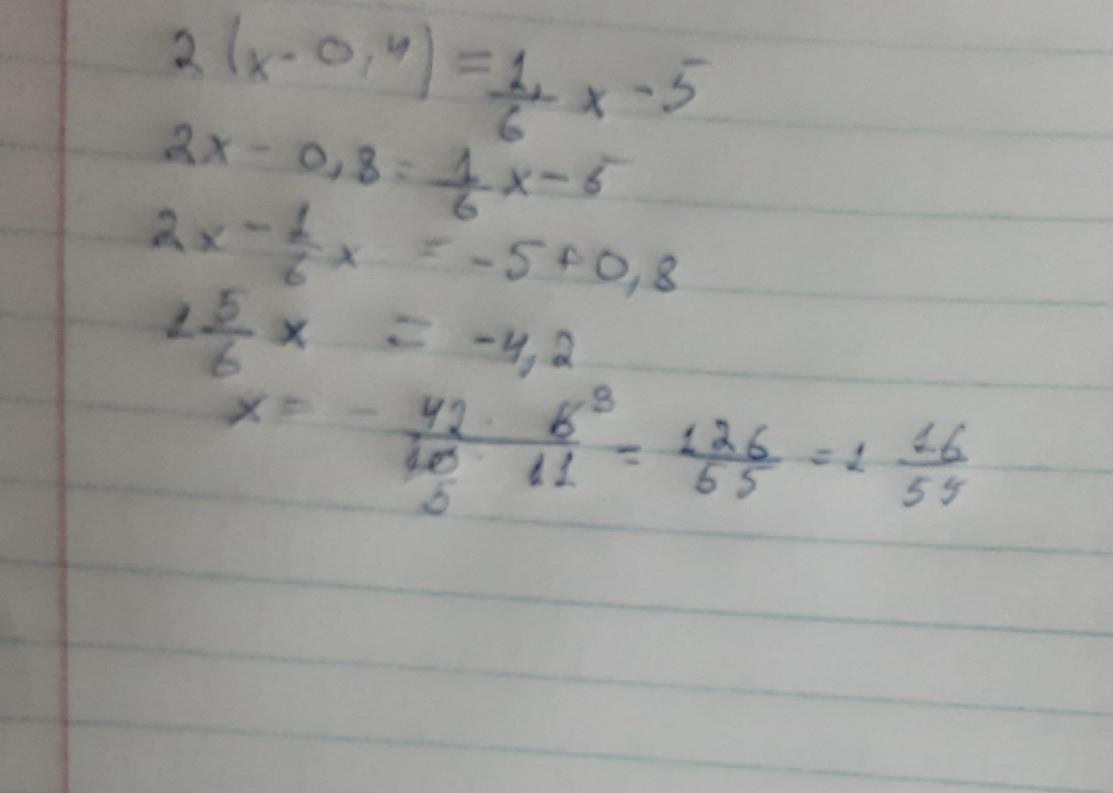 2(x-0,4) = 1/6 x - 5
2x - 0,8 = 1/6 x - 5
2x - 1/6 x = -5 + 0,8
1 5/6 x = -4,2
x = - 42 · 6 3 / 10 · 11 5 = 126/55 = 1 16/55